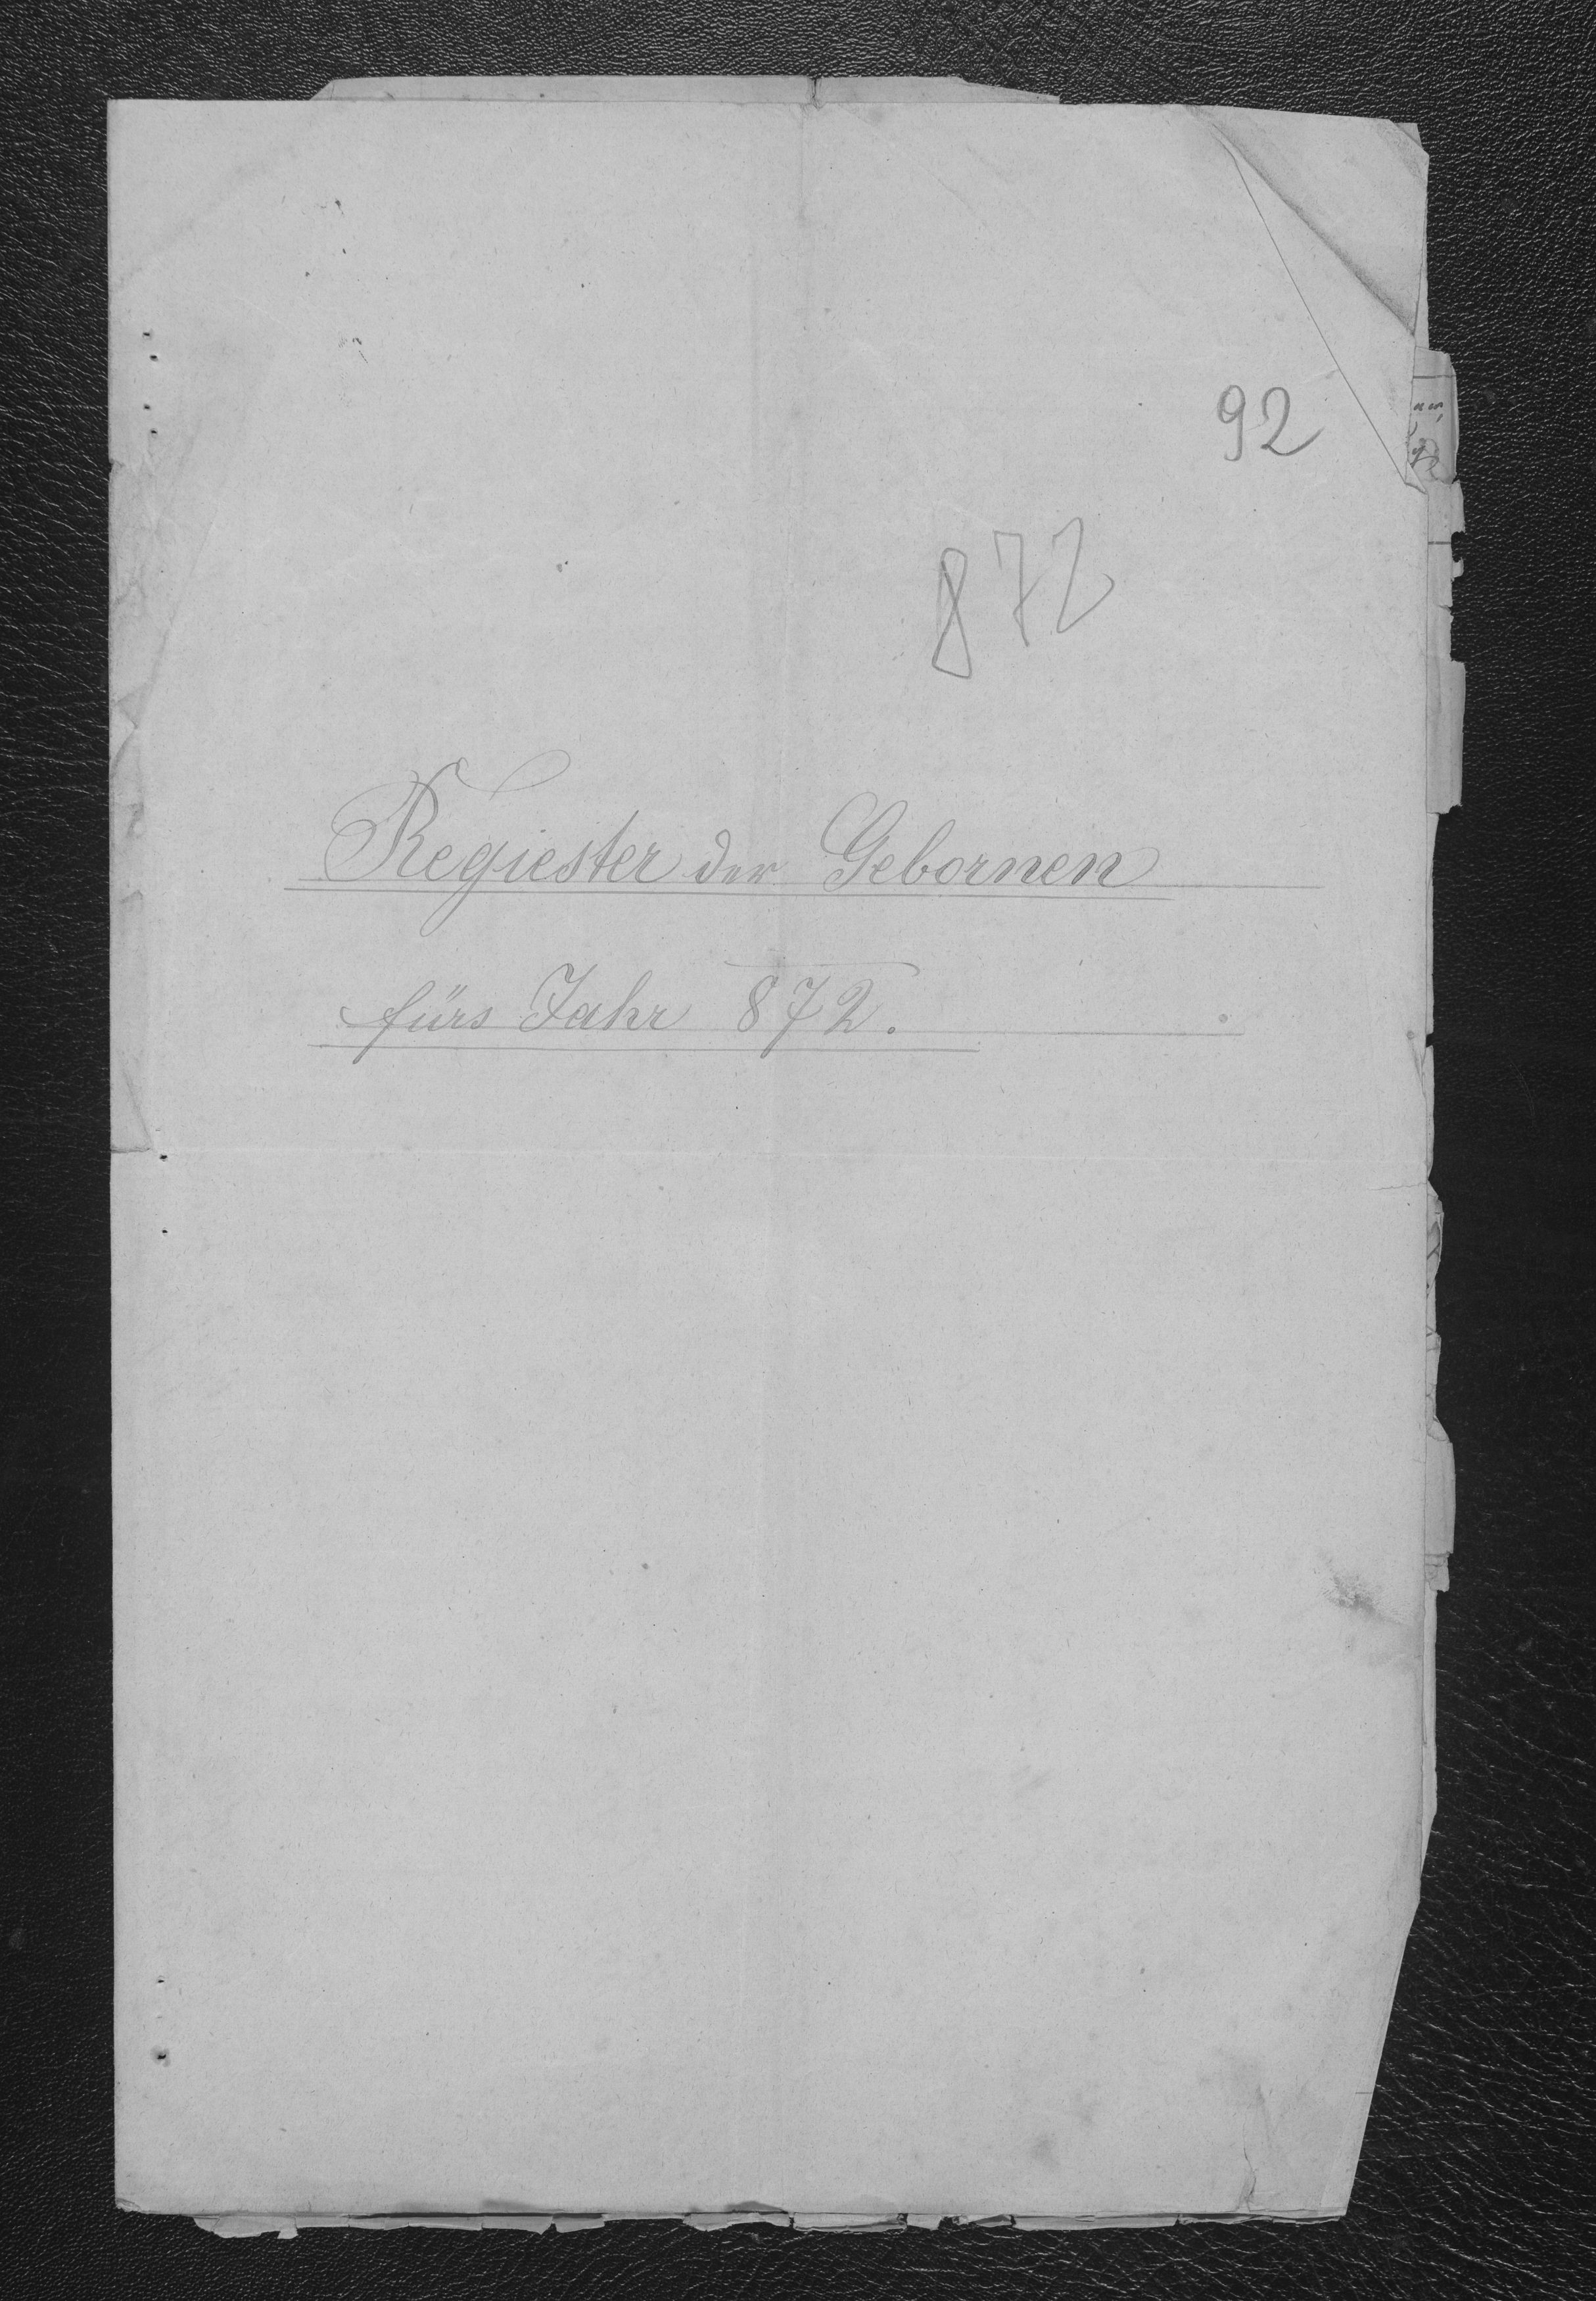 92
872
Regiester der Gebornen
fürs Jahr 872.